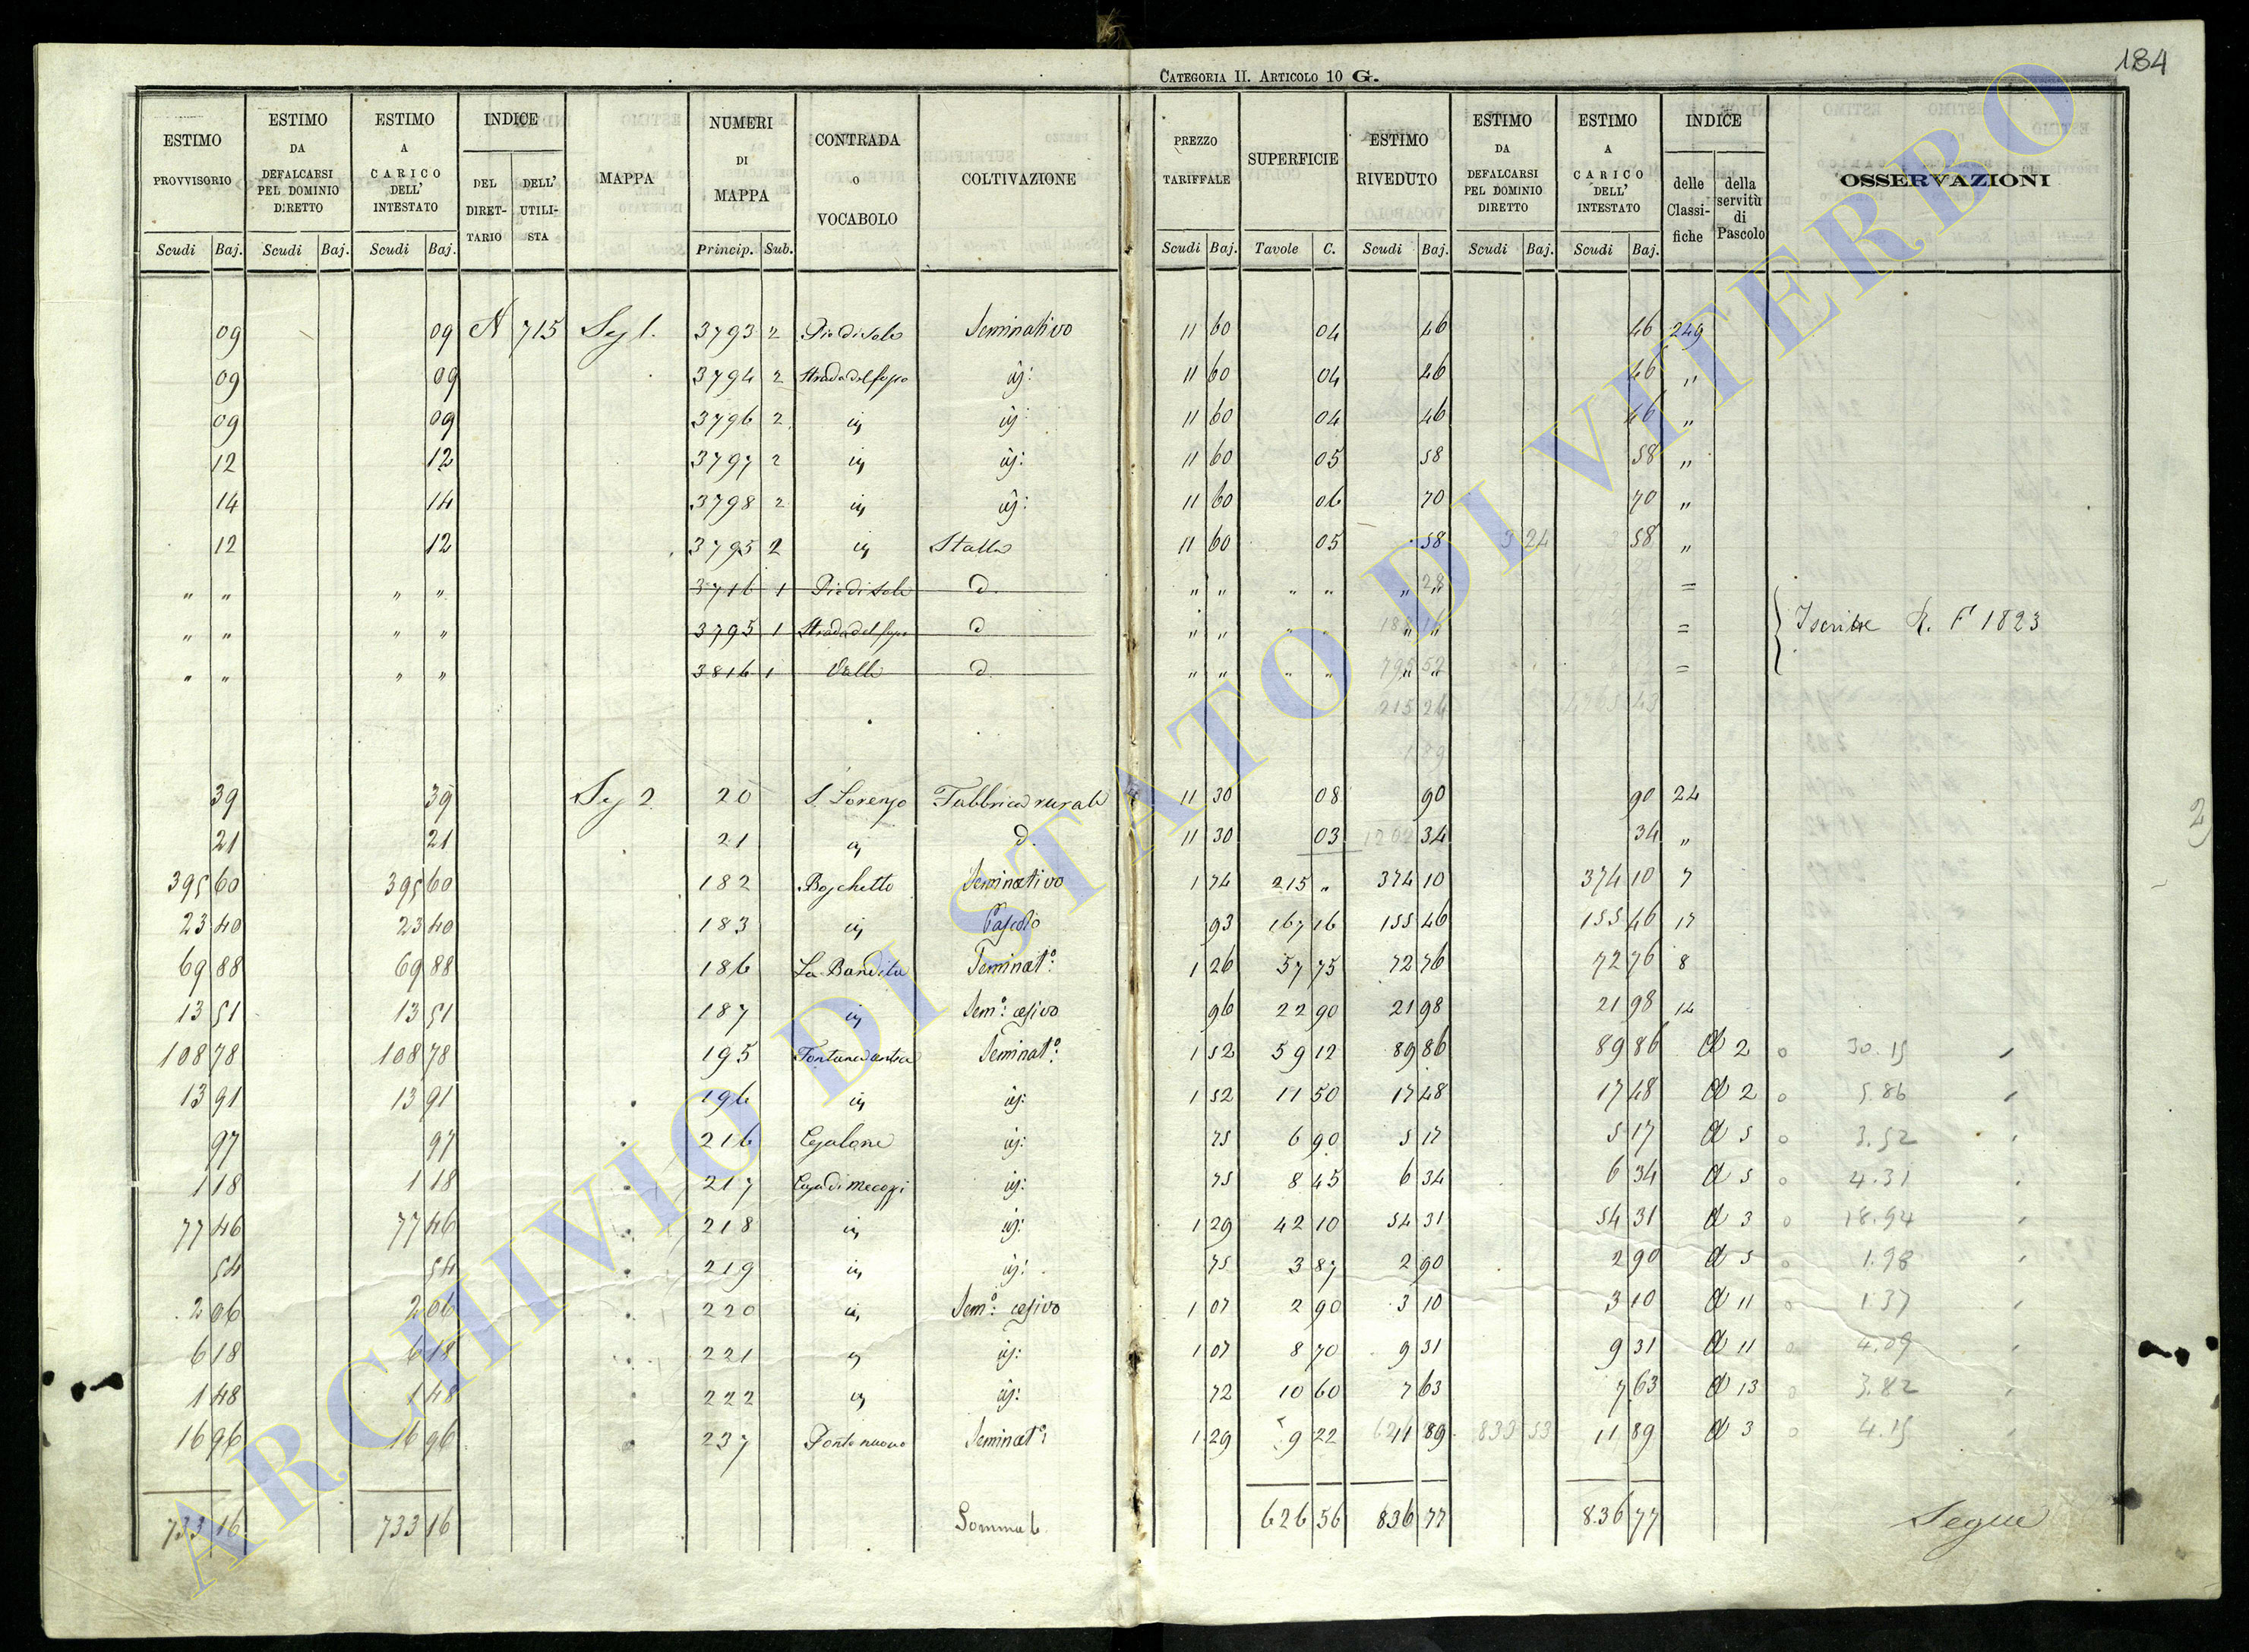 184
CATEGORIA II. ARTICOLO 10 G.
ESTIMO PROVVISORIO | ESTIMO DA DEFALCARSI PEL DOMINIO DIRETTO | ESTIMO A CARICO DELL' INTESTATO | INDICE DEL DIRETTARIO | DELL' UTILISTA | MAPPA | NUMERI DI MAPPA | CONTRADA O VOCABOLO | COLTIVAZIONE | PREZZO TARIFFALE | SUPERFICIE | ESTIMO RIVEDUTO | ESTIMO DA DEFALCARSI PEL DOMINIO DIRETTO | ESTIMO A CARICO DELL' INTESTATO | INDICE delle Classifiche | della servitù di Pascolo | OSSERVAZIONI
Scudi Baj. Scudi Baj. Scudi Baj. Princip. Sub. Scudi Baj. Tavole C. Scudi Baj. Scudi Baj. Scudi Baj.
09 09 N 715 Sez 1. 3793 2 Piedisole Seminativo 11 60 04 46 46 249
09 09 3794 2 Strada del fosso id: 11 60 04 46 46 "
09 09 3796 2 id id: 11 60 04 46 46 "
12 12 3797 2 id id: 11 60 05 58 58 "
14 14 3798 2 id id: 11 60 06 70 70 "
12 12 3795 2 id Stalla 11 60 05 58 3 24 58 "
" " " " 3716 1 Piedisole d. " " " " " " =
" " " " 3795 1 Strada del fosso d " " " " " " = Iscritte R. F 1823
" " " " 3816 1 Valle d. " " " " " " =
39 39 Sez 2 20 S. Lorenzo Fabbrica rurale 11 30 08 90 90 24
21 21 21 id d. 11 30 03 34 34 "
395 60 395 60 182 Boschetto Seminativo 1 74 215 " 374 10 374 10 7
23 40 23 40 183 id Pascolo 93 167 16 155 46 155 46 17
69 88 69 88 186 La Bandita Seminat.o 1 26 57 75 72 76 72 76 8
13 51 13 51 187 id Sem.o cesivo 96 22 90 21 98 21 98 14
108 78 108 78 195 Seminat.o 1 52 59 12 89 86 89 86 d 2 30.15
13 91 13 91 196 id id: 1 52 11 50 17 48 17 48 d 2 5.86
97 97 216 Casalone id: 75 6 90 5 17 5 17 d 5 3.52
1 18 1 18 217 Casa di Mecozzi id: 75 8 45 6 34 6 34 d 5 4.31
77 46 77 46 218 id id: 1 29 42 10 54 31 54 31 d 3 18.94
54 54 219 id id: 75 3 87 2 90 2 90 d 5 1.98
2 06 2 06 220 id Sem.o cesivo 1 07 2 90 3 10 3 10 d 11 1.37
6 18 6 18 221 id id: 1 07 8 70 9 31 9 31 d 11 4.09
1 48 1 48 222 id id: 72 10 60 7 63 7 63 d 13 3.82
16 96 16 96 237 Ponte nuovo Seminat.o 1 29 9 22 11 89 11 89 d 3 4.15
733 16 733 16 Somma 626 56 836 77 836 77 Segue
ARCHIVIO DI STATO DI VITERBO